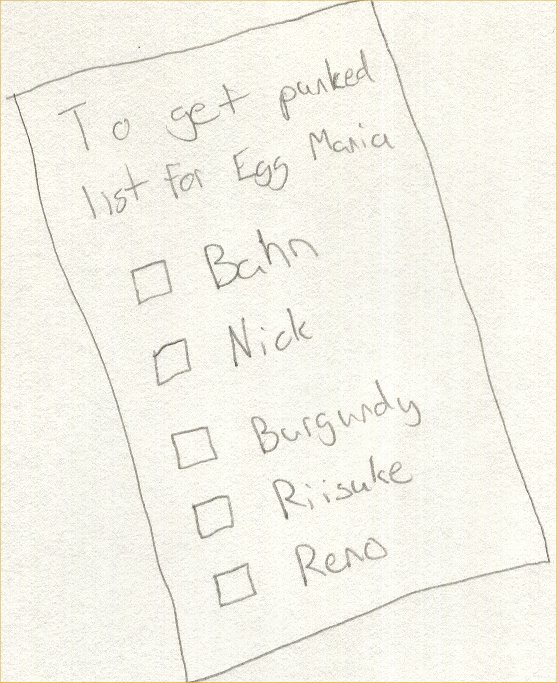 To get punked
list for Egg Mania
Bahn
Nick
Burgundy
Riisuke
Reno